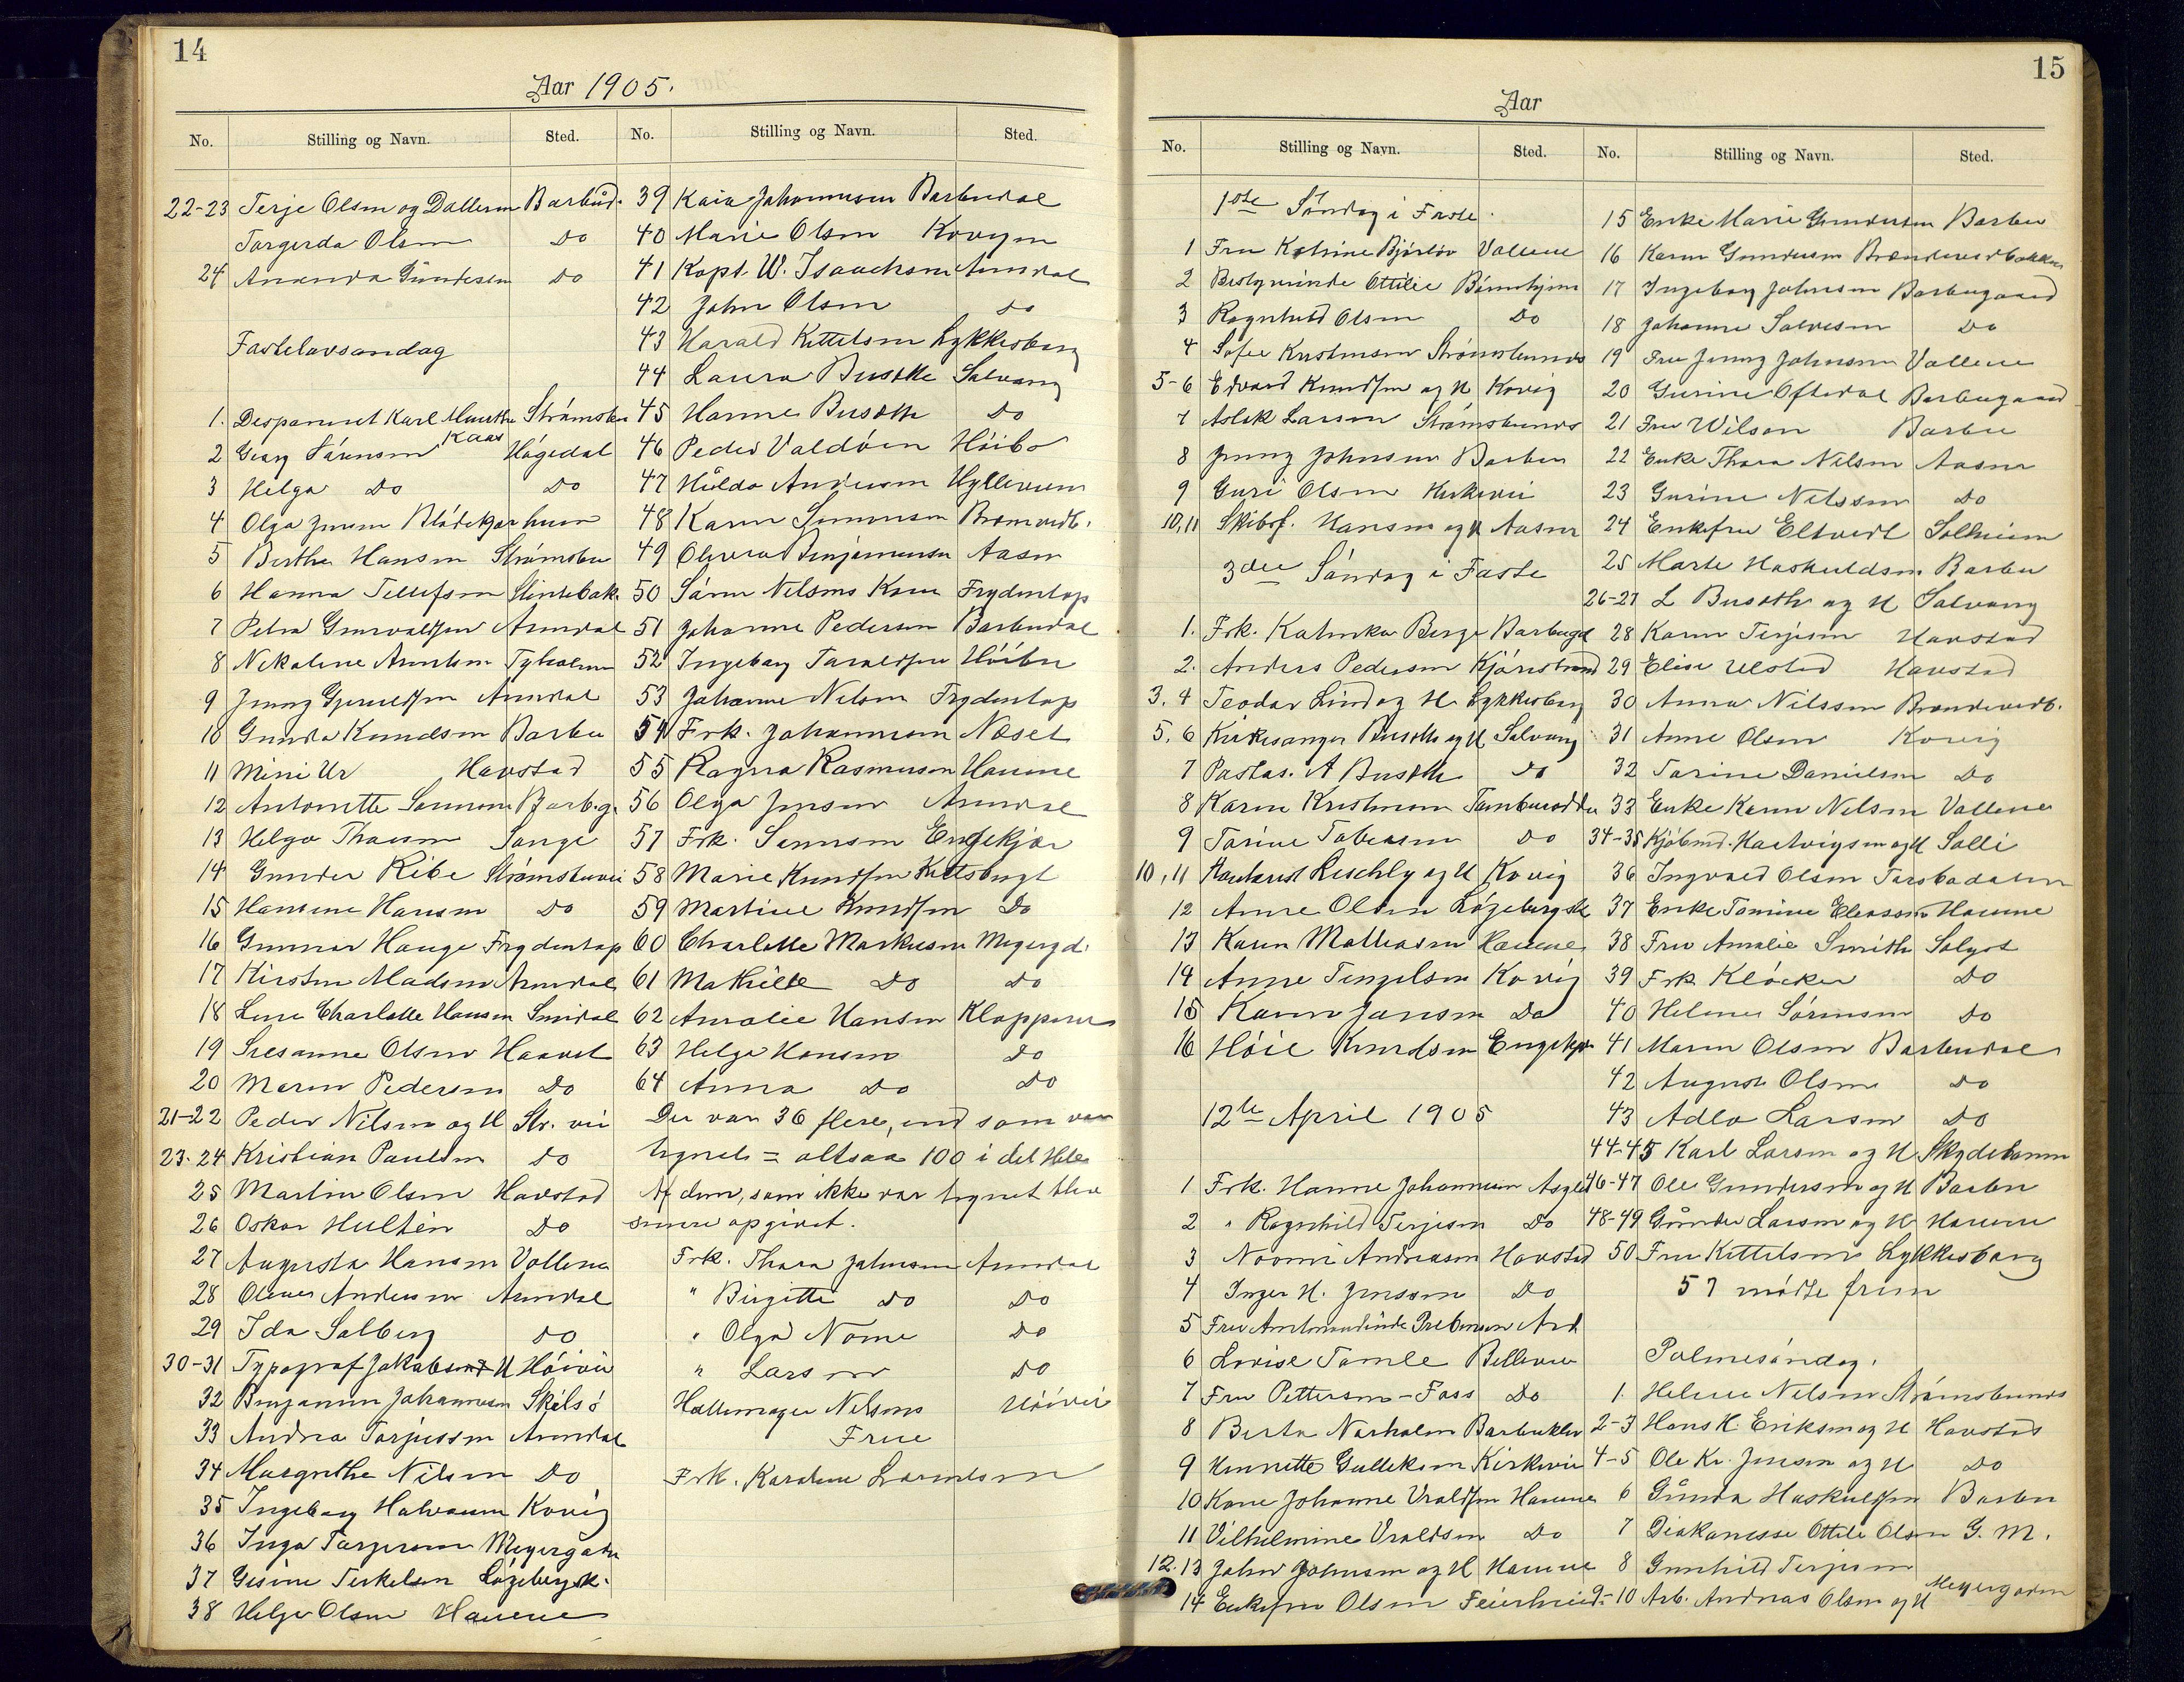 14
Aar 1905.
No. Stilling og Navn. Sted.
22-23 Terje Olsen og Datteren Barbud.
Torgerda Olsen Do
24 Amanda Gundersen Do
Fastelavnsøndag
1. Dispaneret Karl Martin Kaas Strømsbu
2 Georg Sørensen Høgedal
3 Helga Do Do
4 Olga Jensen Blødekjær
5 Berthe Hansen Strømsbu
6 Hanna Tellefsen Slintebak.
7 Petra Grunvaldsen Arendal
8 Nikoline Arntsen Tyholmen
9 Jenny Gjeruldsen Arendal
10 Gunda Knudsen Barbu
11 Mini Ur Havstad
12 Antonette Sørensen Barb.g.
13 Helga Thorsen Songe
14 Gunder Ribe Strømsbuvei
15 Hansine Hansen Do
16 Gunnar Hauge Frydentop
17 Kirsten Madsen Arendal
18 Lene Charlotte Hansen Smidal
19 Susanne Olsen Haavet
20 Maren Pedersen Do
21-22 Peder Nilsen og H Str. vei
23-24 Kristian Paulsen Do
25 Martin Olsen Havstad
26 Oskar Hultén Do
27 Augusta Hansen Vollene
28 Olene Andersen Arendal
29 Ida Solberg Do
30-31 Typograf Jakobsen H Høivei
32 Benjamin Johannesen Skilsø
33 Andrea Torjussen Arendal
34 Margrethe Nilsen Do
35 Ingeborg Halvorsen Kovig
36 Inga Torgersen Meyergaden
37 Gisine Terkelsen Løgebergsk.
38 Helje Olsen Hauene
No. Stilling og Navn. Sted.
39 Kaia Johannesen Barbudal
40 Marie Olsen Kovigen
41 Kapt. W. Isachsen Arendal
42 John Olsen Do
43 Harald Kittelsen Lykkesborg
44 Laura Busoth Solvang
45 Hanne Busoth Do
46 Peder Valdøen Høibo
47 Hulda Andersen Hylleveien
48 Karen Simonsen Brømvedb.
49 Olevea Benjaminsen Aasen
50 Søren Nilsens Kone Frydentop
51 Johanne Pedersen Barbudal
52 Ingeborg Taraldsen Høibu
53 Johanne Nilsen Frydentop
54 Frk. Johannesen Næset
55 Ragna Rasmussen Hauene
56 Olga Jensen Arendal
57 Frk. Sørensen Engekjær
58 Marie Knudsen Kittsbugt
59 Martine Knudsen Do
60 Charlotte Markusen Meyergd.
61 Mathilde Do Do
62 Amalie Hansen Kloppene
63 Helga Hansen Do
64 Anna Do Do
Der var 36 flere, end som var
tegnet = altsaa 100 i det Hele
Af dem, som ikke var tegnet blev
senere opgivet.
Frk. Thora Johnsen Arendal
" Birgitte Do Do
" Olga Nome Do
" Larsen Do
Hattemager Nilsens Frue Høivei
Frk. Karoline Lorentsen
15
Aar
No. Stilling og Navn. Sted.
1ste Søndag i Faste.
1 Fru Katrine Bjørløv Vollene
2 Bestyrerinde Ottilie Børnehjem
3 Ragnhild Olsen Do
4 Sofie Kristensen Strømsbunes
5-6 Edvard Knudsen og H Kovig
7 Aslak Larsen Strømsbunes
8 Jenny Johnsen Barbu
9 Guri Olsen Kirkevei
10,11 Skibsf. Hansen og H Aasen
3die Søndag i Faste
1. Frk. Katinka Berge Barbugd
2. Anders Pedersen Kjørestrand
3.4 Teodor Lind og H. Lykkesborg
5.6 Kirkesanger Busoth og H Solvang
7 Postas. A Busoth Do
8 Karen Kristensen Tambursodden
9 Torine Tobiasen Do
10,11 Kontorist Leschly og H Kovig
12 Anne Olsen Løgebergsk
13 Karen Mathiasen Hauene
14 Anne Tengelsen Kovig
15 Karen Jansen Do
16 Høie Knudsen Engekjær
12te April 1905
1 Frk. Hanne Johannesen Asgd
2 " Ragnhild Terjesen Do
3 Noomi Andreasen Havstad
4 Inger H. Jenssen Do
5 Fru Amtmandinde Prebensen Ard
6 Lovise Tomle Bellevue
7 Fru Pettersen-Foss Do
8 Berta Narholm Barbuklev
9 Henriette Gulleksen Kirkevei
10 Kone Johanne Uraldsen Hauene
11 Vilhelmine Uraldsen Do
12.13 John Johnsen og H Hauene
14 Enkefru Olsen Feierheied.
No. Stilling og Navn. Sted.
15 Enke Marie Gundersen Barbu
16 Karen Gundersen Brændevedbakken
17 Ingeborg Johnsen Barbugaard
18 Johanne Salvesen Do
19 Fru Jenny Johnsen Vollene
20 Gurine Oftedal Barbugaard
21 Fru Wilson Barbu
22 Enke Thora Nilsen Aasen
23 Gurine Nilssen Do
24 Enkefru Eltvedt Solheim
25 Marte Haskuldsen Barbu
26-27 L Busoth og H Solvang
28 Karen Terjesen Havstad
29 Elise Ulstad Havstad
30 Anna Nilssen Brændevedb.
31 Anne Olsen Kovig
32 Torine Danielsen Do
33 Enke Karen Nilsen Vollene
34-35 Kjøbmd. Hartvigsen og H Solli
36 Ingvald Olsen Torsbudalen
37 Enke Tomine Eliassen Hauene
38 Fru Amalie Smith Solyst
39 Frk Kløcker Do
40 Helene Sørensen Do
41 Maren Olsen Barbudal
42 August Olsen Do
43 Adla Larsen Do
44-45 Karl Larsen og H Skydebanen
46-47 Ole Gundersen og H Barbu
48-49 Gunder Larsen og H Hauene
50 Fru Kittelsen Lykkesborg
57 mødte frem
Palmesøndag.
1. Helene Nilsen Strømsbunes
2-3 Hans H. Eriksen og H Havstad
4-5 Ole Kr. Jensen og H Do
6 Gunda Haskuldsen Barbu
7 Diakonisse Ottilie Olsen G. M.
8 Gunhild Terjesen
9-10 Arb. Andreas Olsen og H Meyergaden